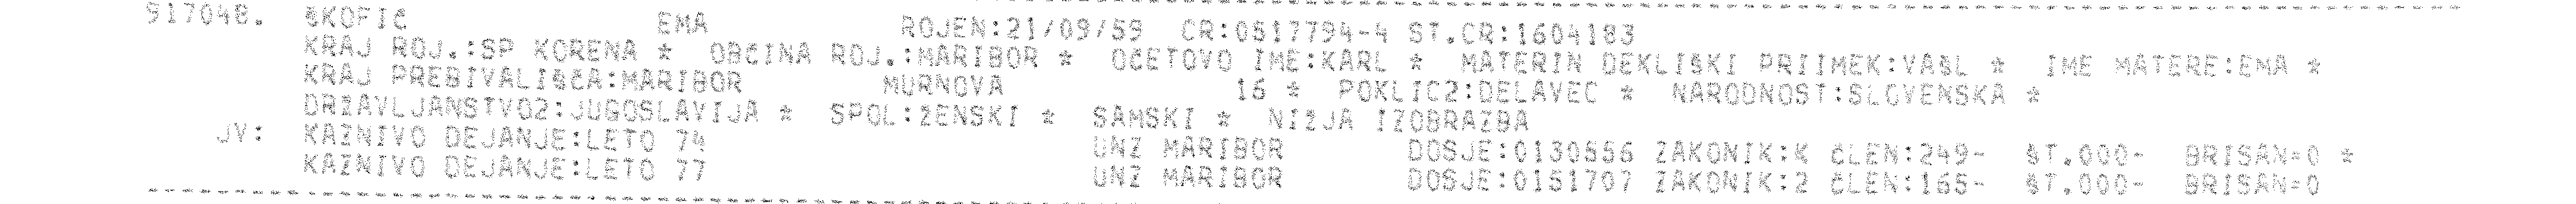 917048. ŠKOFIČ EMA ROJEN:21/09/59 CR:0517794-4 ST.CR:1604183
KRAJ ROJ.:SP KORENA * OBČINA ROJ.:MARIBOR * OČETOVO IME:KARL * MATERIN DEKLIŠKI PRIIMEK:VAŠL * IME MATERE:EMA *
KRAJ PREBIVALIŠČA:MARIBOR MURNOVA 16 * POKLIC2:DELAVEC * NARODNOST:SLOVENSKA *
DRŽAVLJANSTVO2:JUGOSLAVIJA * SPOL:ŽENSKI * SAMSKI * NIŽJA IZOBRAZBA
JV: KAZNIVO DEJANJE:LETO 74 UNZ MARIBOR DOSJE:0130556 ZAKONIK:K ČLEN:249- ŠT.000- BRISAN=0 *
KAZNIVO DEJANJE:LETO 77 UNZ MARIBOR DOSJE:0151707 ZAKONIK:2 ČLEN:165- ŠT.000- BRISAN=0